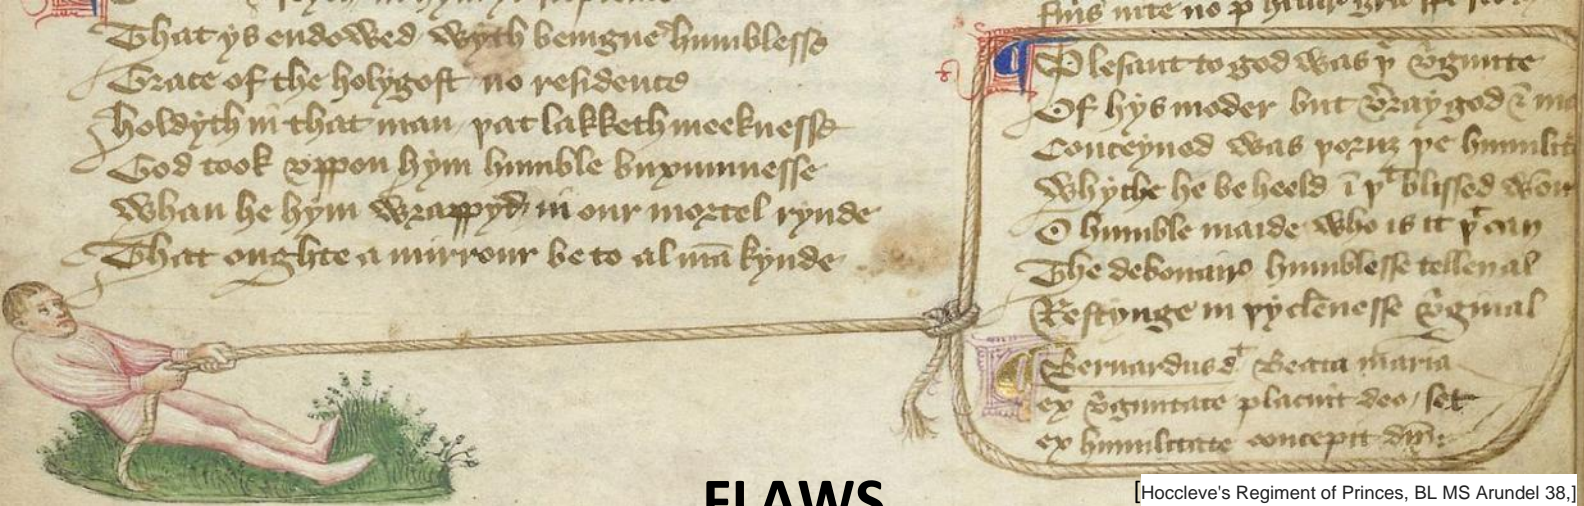 That ys endowed wyth benigne humblesse
Grace of the holygost no residence
Holdyth in that man þat lakketh meeknesse
God took vppon hym humble buxumnesse
Whan he hym wrappyd in our mortel rynde
That oughte a mirrour be to al mā kynde
Plesant to god was þͥ v̄ginite
Of hys moder but v̄ray god
Conceyued was þoruȝ þe
Whyche he be heeld ī þᵗ blissed
O humble maide who is it þᵗ can
The debonair humblesse tellen al
Restynge in þy clēnesse v̄ginal
Bernardus dᵗ Beata maria
ex v̄ginitate placuit deo / set
ex humilitate concepit dm̄
FLAWS
[Hoccleve's Regiment of Princes, BL MS Arundel 38,]